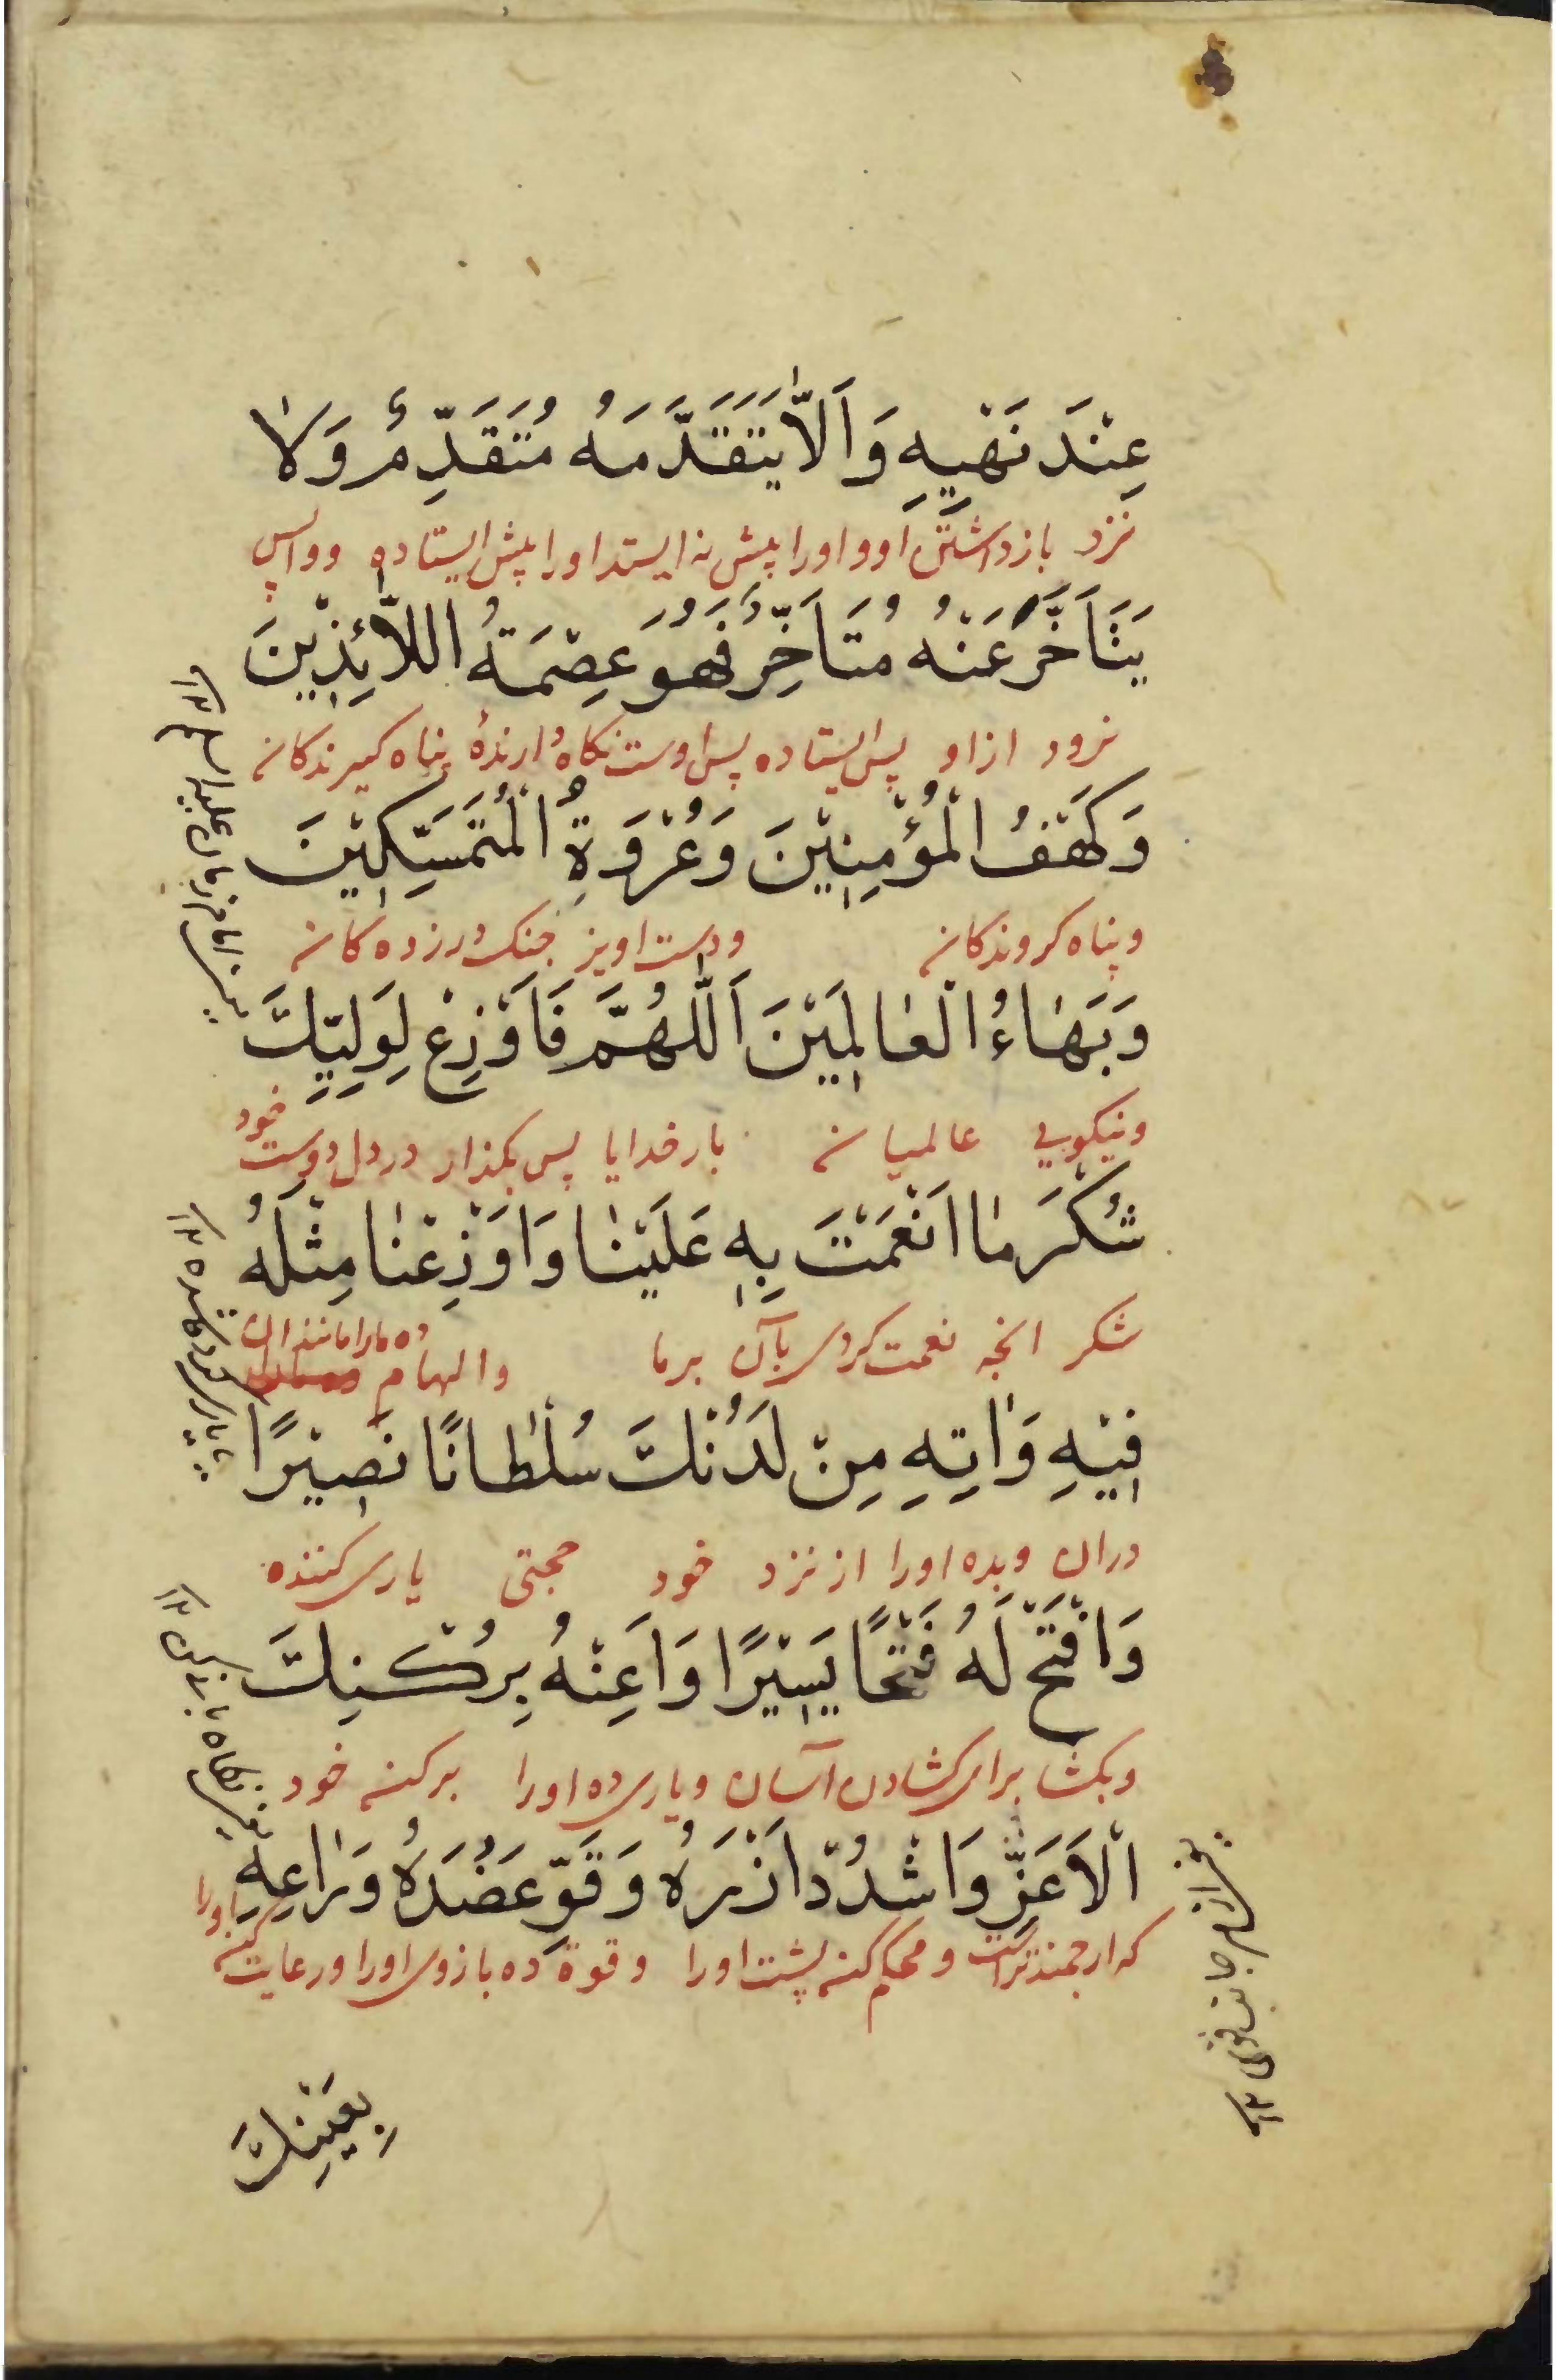 عِنْدَ نَهْیِهِ وَ اَلاَّ یَتَقَدَّمَهُ مُتَقَدِّمٌ وَلاٰ
نزد بازداشتن او و اورا پیش نه ایستد اورا پیش ایستاده و واپس
یَتَاَخَّرَ عَنْهُ مُتَاَخِّرٌ فَهُوَ عِصْمَةُ اللاّٰئِذِیْنَ
نرود از او پس ایستاده پس اوست نکاه دارندهٔ پناه کیرندکان
وَکَهْفُ الْمُؤْمِنِیْنَ وَعُرْوَةُ الْمُتَمَسِّکِیْنَ
و پناه کروندکان ودست اویز چنک درزده کان
وَبَهٰاءُ الْعٰالَمِیْنَ اَللّٰهُمَّ فَاَوْزِعْ لِوَلِیِّکَ
ونیکویی عالمیان بار خدایا پس بکذار در دل دوست خود
شُکْرَ مٰا اَنْعَمْتَ بِهِ عَلَیْنٰا وَاَوْزِعْنٰا مِثْلَهُ
شکر انچه نعمت کردی بآن برما والهام ده مارا مانند ان
فِیْهِ وَاٰتِهِ مِنْ لَدُنْکَ سُلْطٰانًا نَصِیْرًا
دران وبده اورا از نزد خود حجتی یاری کننده
وَافْتَحْ لَهُ فَتْحًا یَسِیْرًا وَاَعِنْهُ بِرُکْنِکَ
وبکشا برای کشادن آسان ویاری ده اورا برکن خود
اْلاَعَزِّ وَاشْدُدْ اَزْرَهُ وَقَوِّ عَضُدَهُ وَرٰاعِهِ
که ارجمندتراست و محکم کن پشت اورا وقوة ده بازوی اورا ورعایت کن اورا
بِعَیْنِکَ
یعنی امام زمان علیه السلم ۱۲